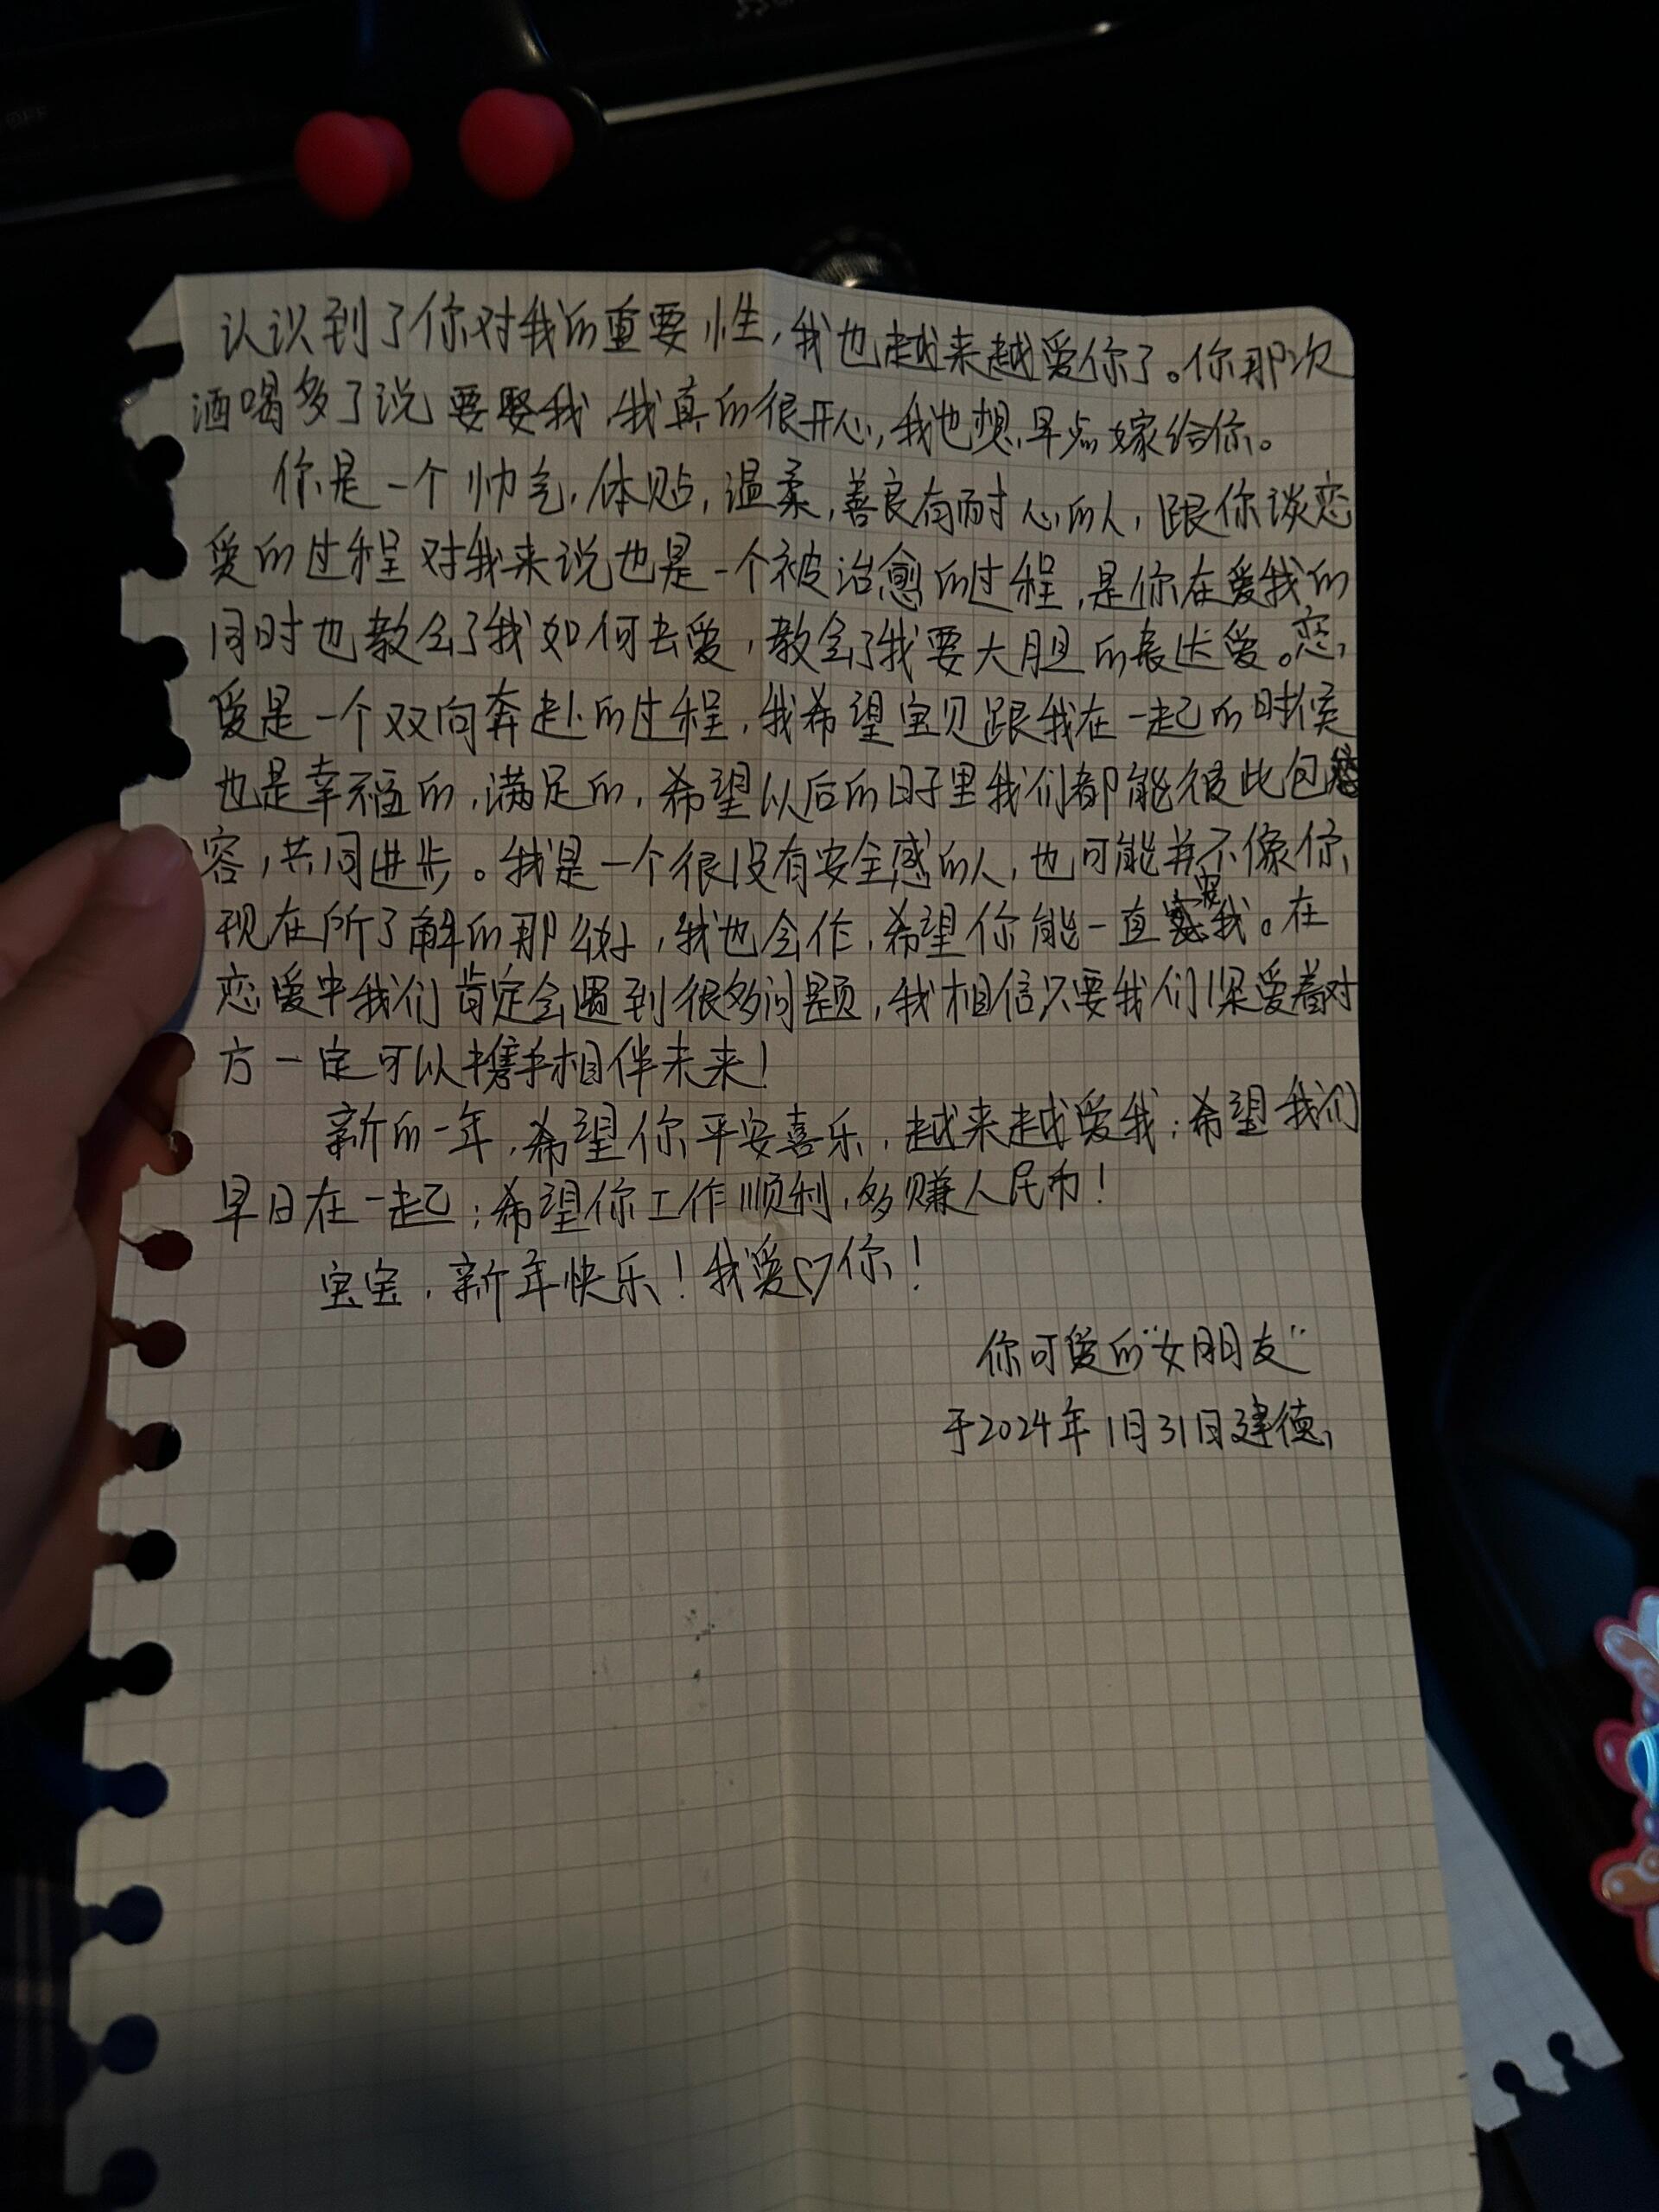 认识到了你对我的重要性，我也越来越爱你了。你那次
酒喝多了说要娶我，我真的很开心，我也想早点嫁给你。
你是一个帅气，体贴，温柔，善良有耐心的人，跟你谈恋
爱的过程对我来说也是一个被治愈的过程，是你在爱我的
同时也教会了我如何去爱，教会了我要大胆的表达爱。恋
爱是一个双向奔赴的过程，我希望宝贝跟我在一起的时候
也是幸福的，满足的，希望以后的日子里我们都能彼此包
容，共同进步。我是一个很没有安全感的人，也可能并不像你
现在所了解的那么好，我也会作，希望你能一直我。在
恋爱中我们肯定会遇到很多问题，我相信只要我们深爱着对
方一定可以携手相伴未来！
新的一年，希望你平安喜乐，越来越爱我；希望我们
早日在一起；希望你工作顺利，多赚人民币！
宝宝，新年快乐！我爱♡你！
你可爱的“女朋友”
于2024年1月31日建德
OFF